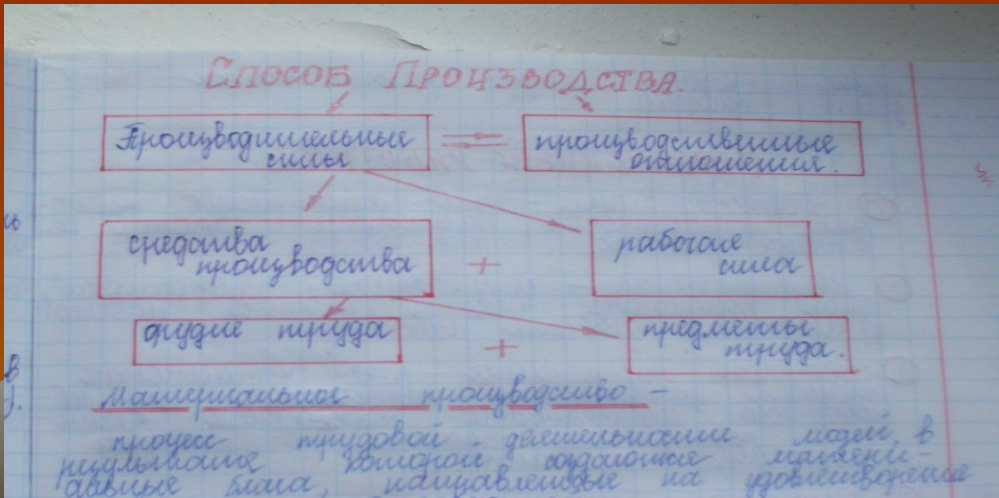 Способ Производства.
Производительные производственные
силы отношения.
средства рабочая
производства + сила
орудие труда предметы
+ труда.
Материальное производство -
процесс трудовой деятельности людей, в
результате которой создаются матери-
альные блага, направленные на удовлетворение